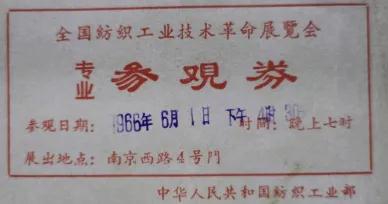 全国纺织工业技术革命展覽会
专业 参观券
参观日期：1966年6月1日下午4时30 时间：晚上七时
展出地点：南京西路4号門
中华人民共和国纺织工业部